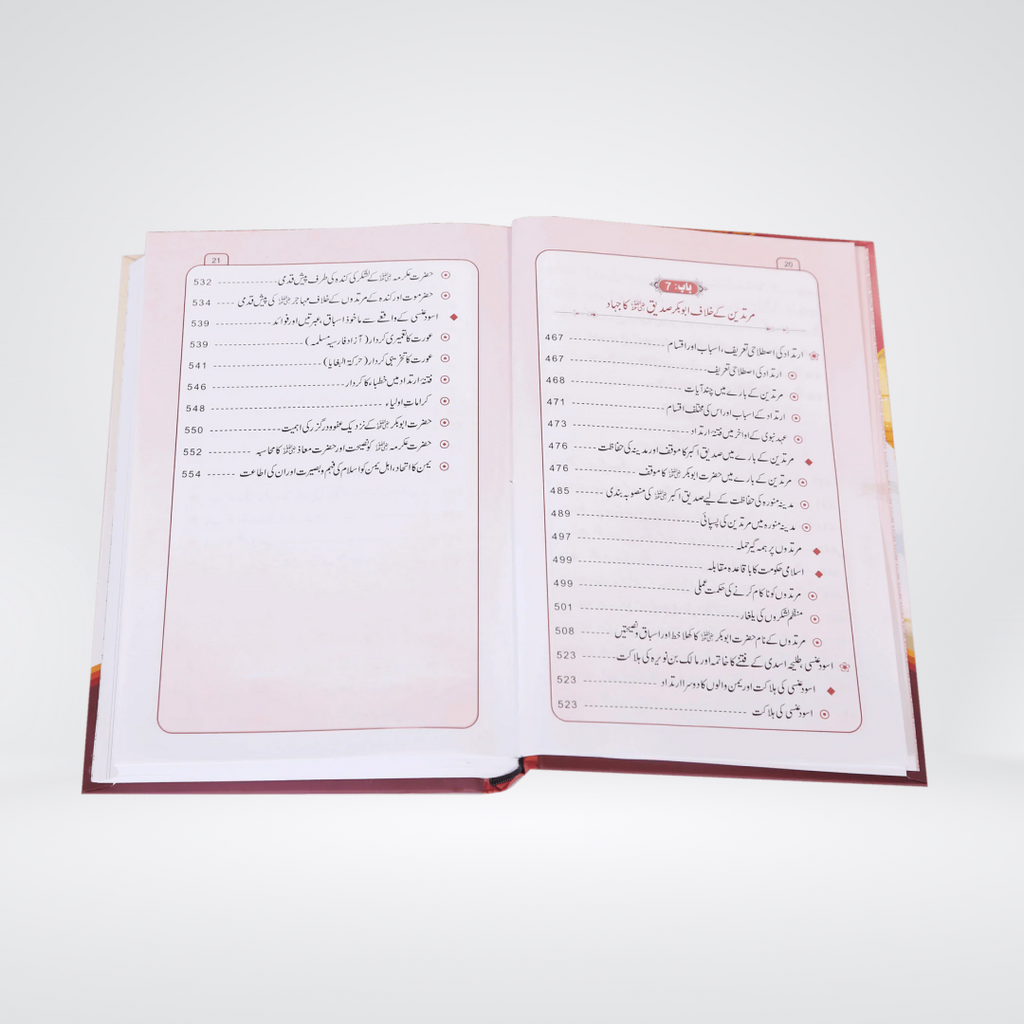 20
باب: 7
مرتدین کے خلاف ابوبکر صدیق رضی اللہ عنہ کا جہاد
ارتداد کی اصطلاحی تعریف، اسباب اور اقسام 467
ارتداد کی اصطلاحی تعریف 467
مرتدین کے بارے میں چند آیات 468
ارتداد کے اسباب اور اس کی مختلف اقسام 471
عہد نبوی کے اواخر میں فتنۂ ارتداد 473
مرتدین کے بارے میں صدیق اکبر کا موقف اور مدینہ کی حفاظت 476
مرتدین کے بارے میں حضرت ابوبکر رضی اللہ عنہ کا موقف 476
مدینہ منورہ کی حفاظت کے لیے صدیق اکبر رضی اللہ عنہ کی منصوبہ بندی 485
مدینہ منورہ میں مرتدین کی پسپائی 489
مرتدوں پر ہمہ گیر حملہ 497
اسلامی حکومت کا باقاعدہ مقابلہ 499
مرتدوں کو ناکام کرنے کی حکمت عملی 499
منظم لشکروں کی یلغار 501
مرتدوں کے نام حضرت ابوبکر رضی اللہ عنہ کا کھلا خط اور اسباق و نصیحتیں 508
اسود عنسی، طلیحہ اسدی کے فتنے کا خاتمہ اور مالک بن نویرہ کی ہلاکت 523
اسود عنسی کی ہلاکت اور یمن والوں کا دوسرا ارتداد 523
اسود عنسی کی ہلاکت 523
21
حضرت عکرمہ رضی اللہ عنہ کے لشکر کی کندہ کی طرف پیش قدمی 532
حضرموت اور کندہ کے مرتدوں کے خلاف مہاجر رضی اللہ عنہ کی پیش قدمی 534
اسود عنسی کے واقعے سے ماخوذ اسباق، عبرتیں اور فوائد 539
عورت کا تعمیری کردار (آزاد فارسیہ مسلمہ) 539
عورت کا تخریبی کردار (حرکۃ البغایا) 541
فتنۂ ارتداد میں خطباء کا کردار 546
کرامات اولیاء 548
حضرت ابوبکر رضی اللہ عنہ کے نزدیک عفو و درگزر کی اہمیت 550
حضرت عکرمہ رضی اللہ عنہ کو نصیحت اور حضرت معاذ رضی اللہ عنہ کا محاسبہ 552
یمن کا اتحاد، اہل یمن کو اسلام کی فہم و بصیرت اور ان کی اطاعت 554